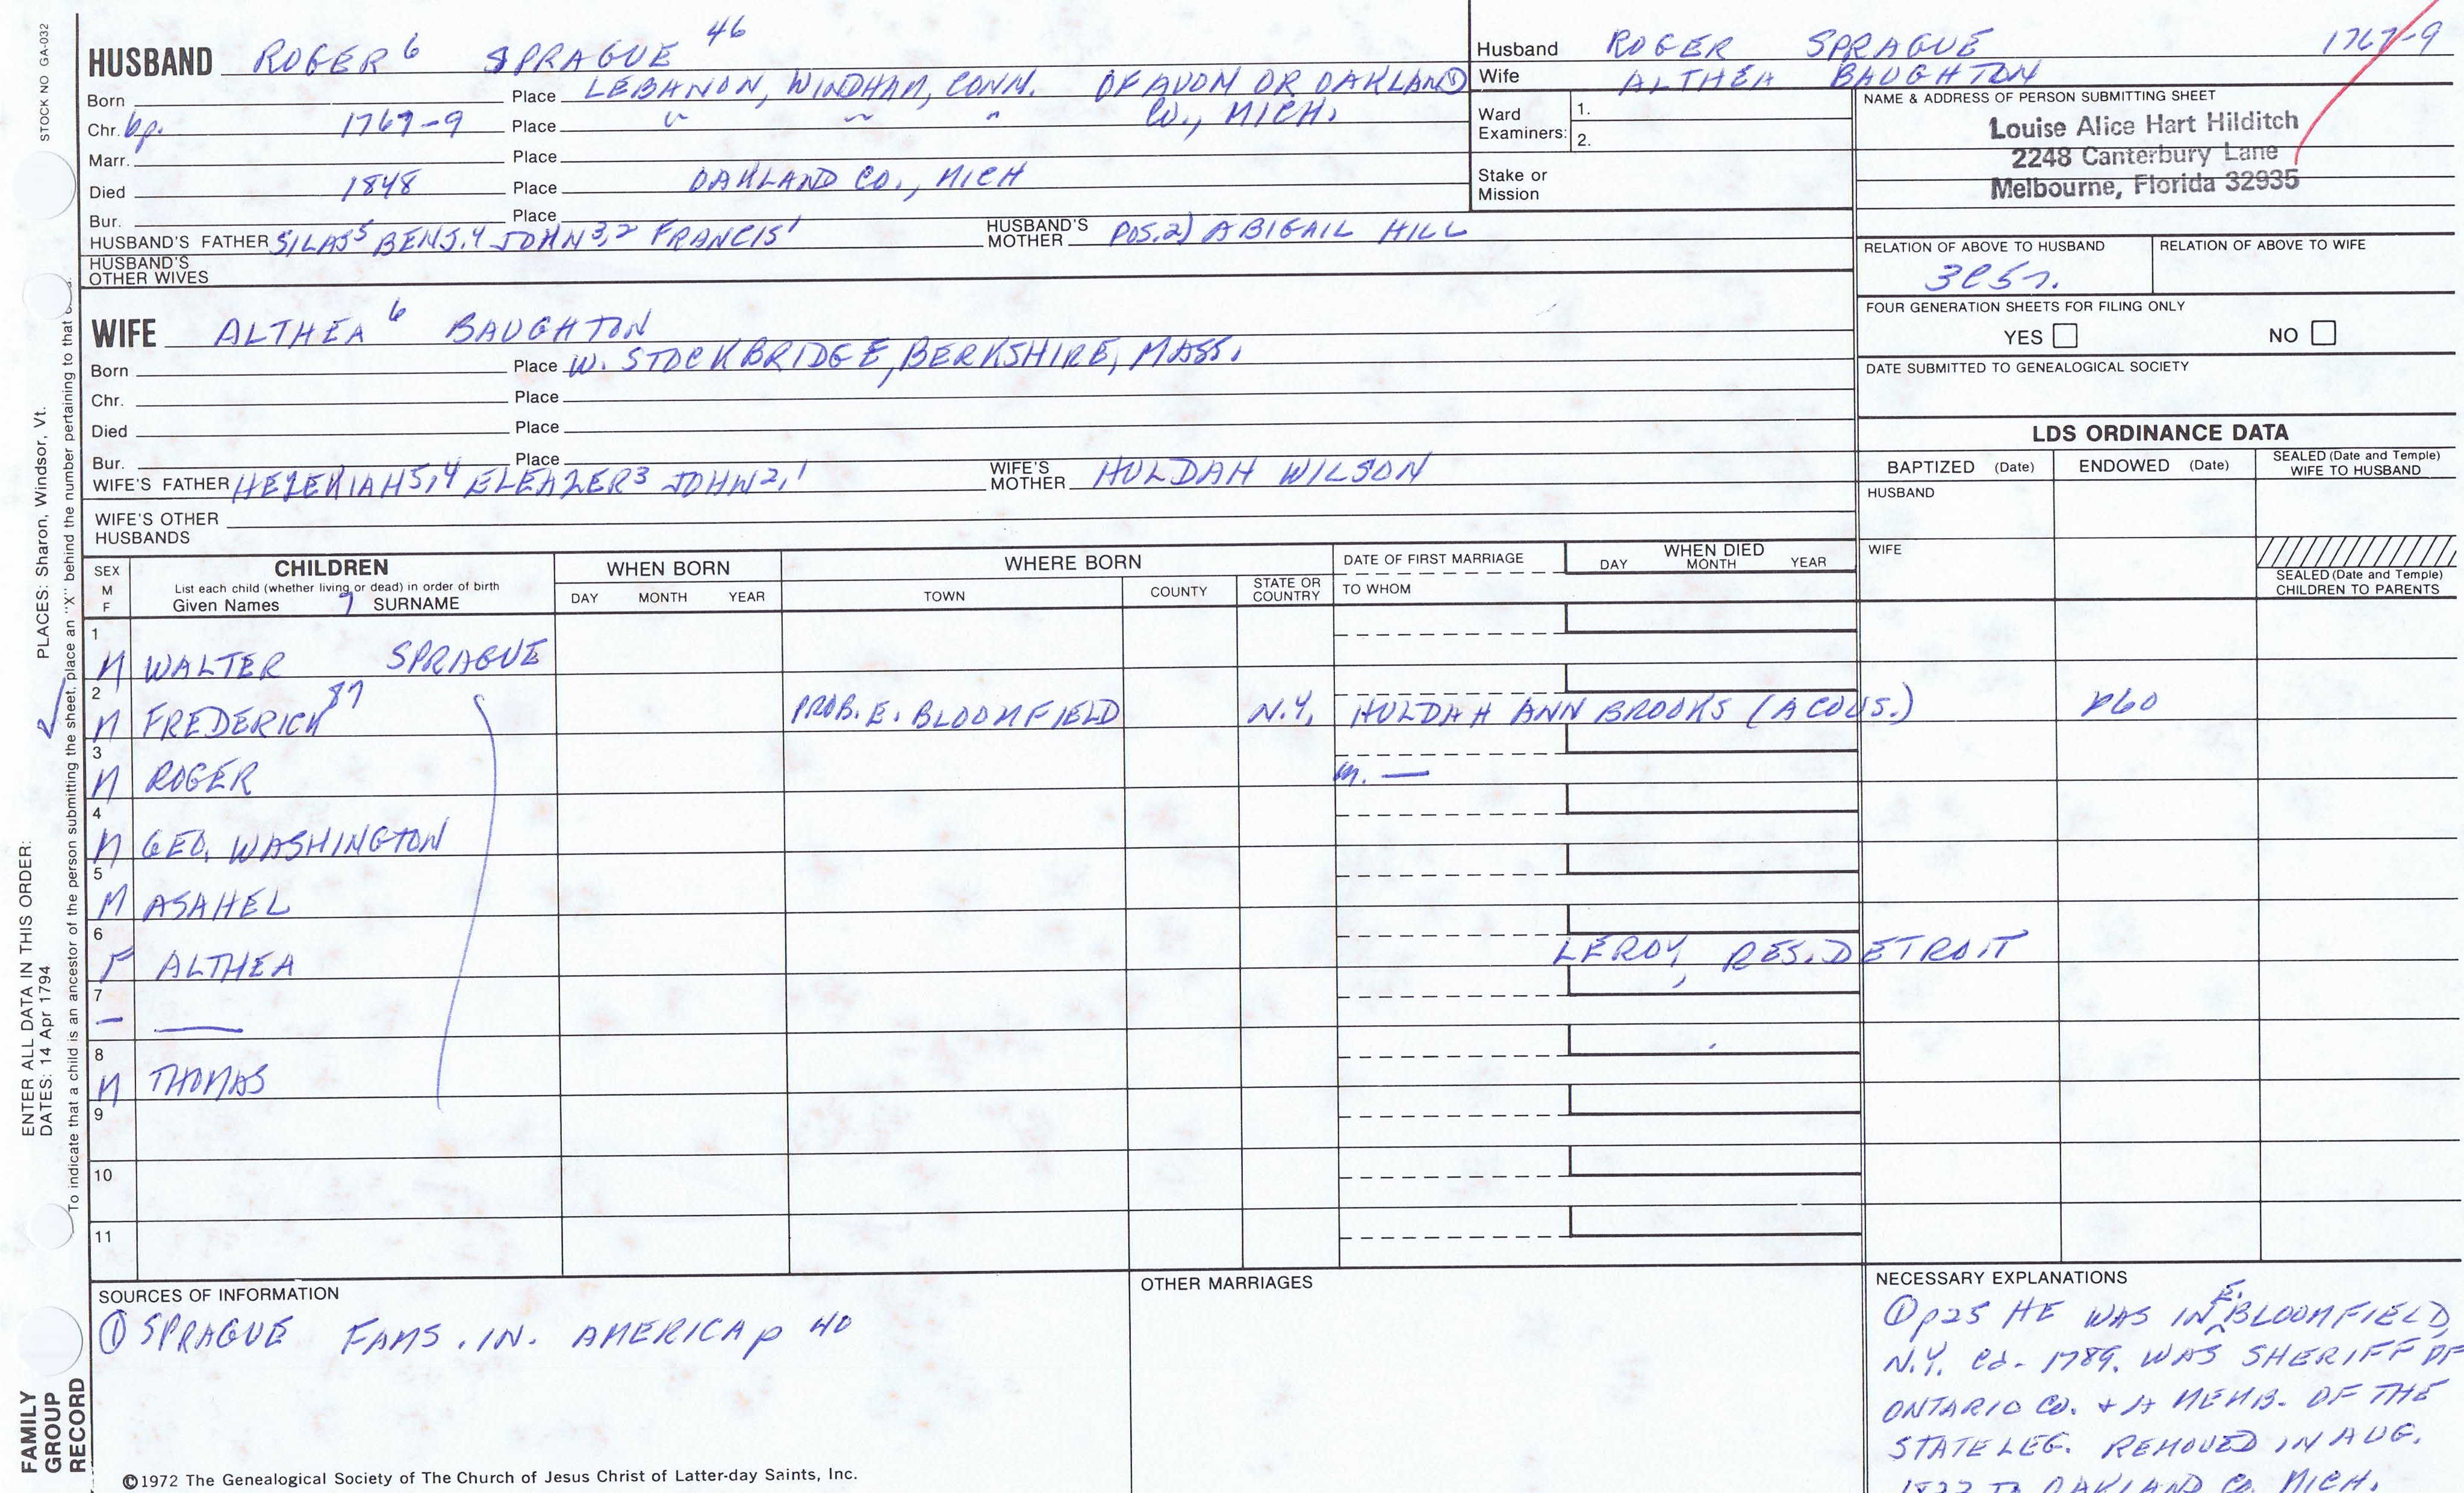 STOCK NO GA-032
HUSBAND ROGER 6 SPRAGUE 46
Born Place LEBANON, WINDHAM, CONN. OF AVON OR OAKLAND ①
Chr. bp. 1767-9 Place " " " CO., MICH.
Marr. Place
Died 1848 Place OAKLAND CO., MICH
Bur. Place
HUSBAND'S FATHER SILAS5 BENJ.4 JOHN3,2 FRANCIS1 HUSBAND'S MOTHER POS. 2) ABIGAIL HILL
HUSBAND'S OTHER WIVES
WIFE ALTHEA 6 BAUGHTON
Born Place W. STOCKBRIDGE, BERKSHIRE, MASS.
Chr. Place
Died Place
Bur. Place
WIFE'S FATHER HEZEKIAH5,4 ELEAZER3 JOHN2,1 WIFE'S MOTHER HULDAH WILSON
WIFE'S OTHER HUSBANDS
Husband ROGER SPRAGUE 1767-9
Wife ALTHEA BAUGHTON
Ward Examiners: 1.
2.
Stake or Mission
NAME & ADDRESS OF PERSON SUBMITTING SHEET
Louise Alice Hart Hilditch
2248 Canterbury Lane
Melbourne, Florida 32935
RELATION OF ABOVE TO HUSBAND RELATION OF ABOVE TO WIFE
FOUR GENERATION SHEETS FOR FILING ONLY
YES NO
DATE SUBMITTED TO GENEALOGICAL SOCIETY
LDS ORDINANCE DATA
BAPTIZED (Date) ENDOWED (Date) SEALED (Date and Temple) WIFE TO HUSBAND
HUSBAND
WIFE
SEALED (Date and Temple) CHILDREN TO PARENTS
SEX M F
CHILDREN
List each child (whether living or dead) in order of birth
Given Names 7 SURNAME
WHEN BORN
DAY MONTH YEAR
WHERE BORN
TOWN COUNTY STATE OR COUNTRY
DATE OF FIRST MARRIAGE
TO WHOM
WHEN DIED
DAY MONTH YEAR
1 M WALTER SPRAGUE
2 M FREDERICK 87 PROB. E. BLOOMFIELD N.Y. HULDAH ANN BROOKS (A COUS.) P60
3 M ROGER m. —
4 M GEO. WASHINGTON
5 M ASAHEL
6 F ALTHEA LEROY, RES. DETROIT
7 — —
8 M THOMAS
9
10
11
SOURCES OF INFORMATION
① SPRAGUE FAMS. IN. AMERICA p 40
OTHER MARRIAGES
NECESSARY EXPLANATIONS
① p25 HE WAS IN E. BLOOMFIELD,
N.Y. Cd. 1789. WAS SHERIFF OF
ONTARIO CO. + A MEMB. OF THE
STATE LEG. REMOVED IN AUG.
TO OAKLAND CO. MICH.
©1972 The Genealogical Society of The Church of Jesus Christ of Latter-day Saints, Inc.
FAMILY GROUP RECORD
ENTER ALL DATA IN THIS ORDER:
DATES: 14 Apr 1794
PLACES: Sharon, Windsor, Vt.
To indicate that a child is an ancestor of the person submitting the sheet, place an "X" behind the number pertaining to that